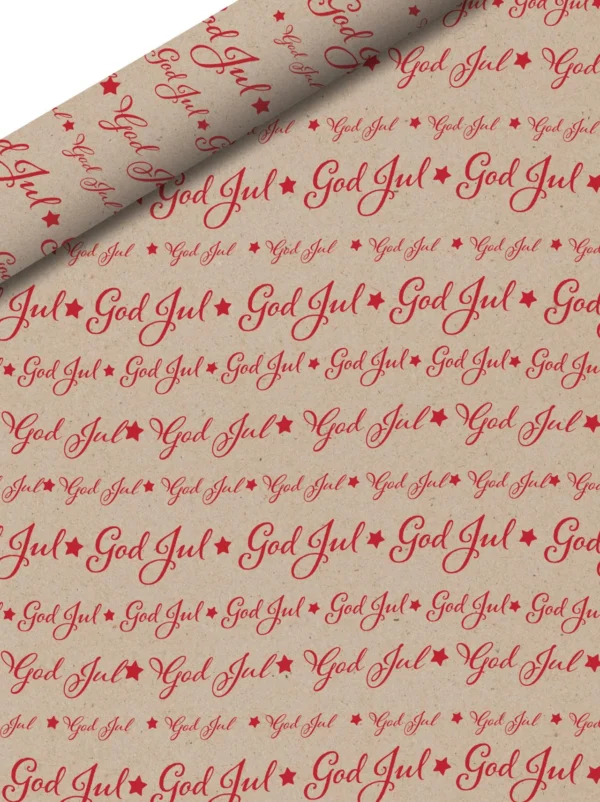 God Jul
God Jul
God Jul
God Jul
God Jul
God Jul
God Jul
Jul ★ God Jul
God Jul ★ God
God Jul ★ God Jul ★ God Jul
God Jul ★ God Jul ★ God Jul ★
God Jul ★ God Jul ★ God Jul ★ God Jul ★ God Jul ★ God
Jul ★ God Jul ★ God Jul ★ God Jul ★ God
★ God Jul ★ God Jul ★ God Jul ★ God Jul ★ God Jul ★ God Jul
God Jul ★ God Jul ★ God Jul ★ God Jul ★
Jul ★ God Jul ★ God Jul ★ God Jul ★ God Jul ★ God Jul ★ God
Jul ★ God Jul ★ God Jul ★ God Jul ★ God
★ God Jul ★ God Jul ★ God Jul ★ God Jul ★ God Jul ★ God Jul
God Jul ★ God Jul ★ God Jul ★ God Jul ★
Jul ★ God Jul ★ God Jul ★ God Jul ★ God Jul ★ God Jul ★ God
God Jul ★ God Jul ★ God Jul ★ God Jul ★